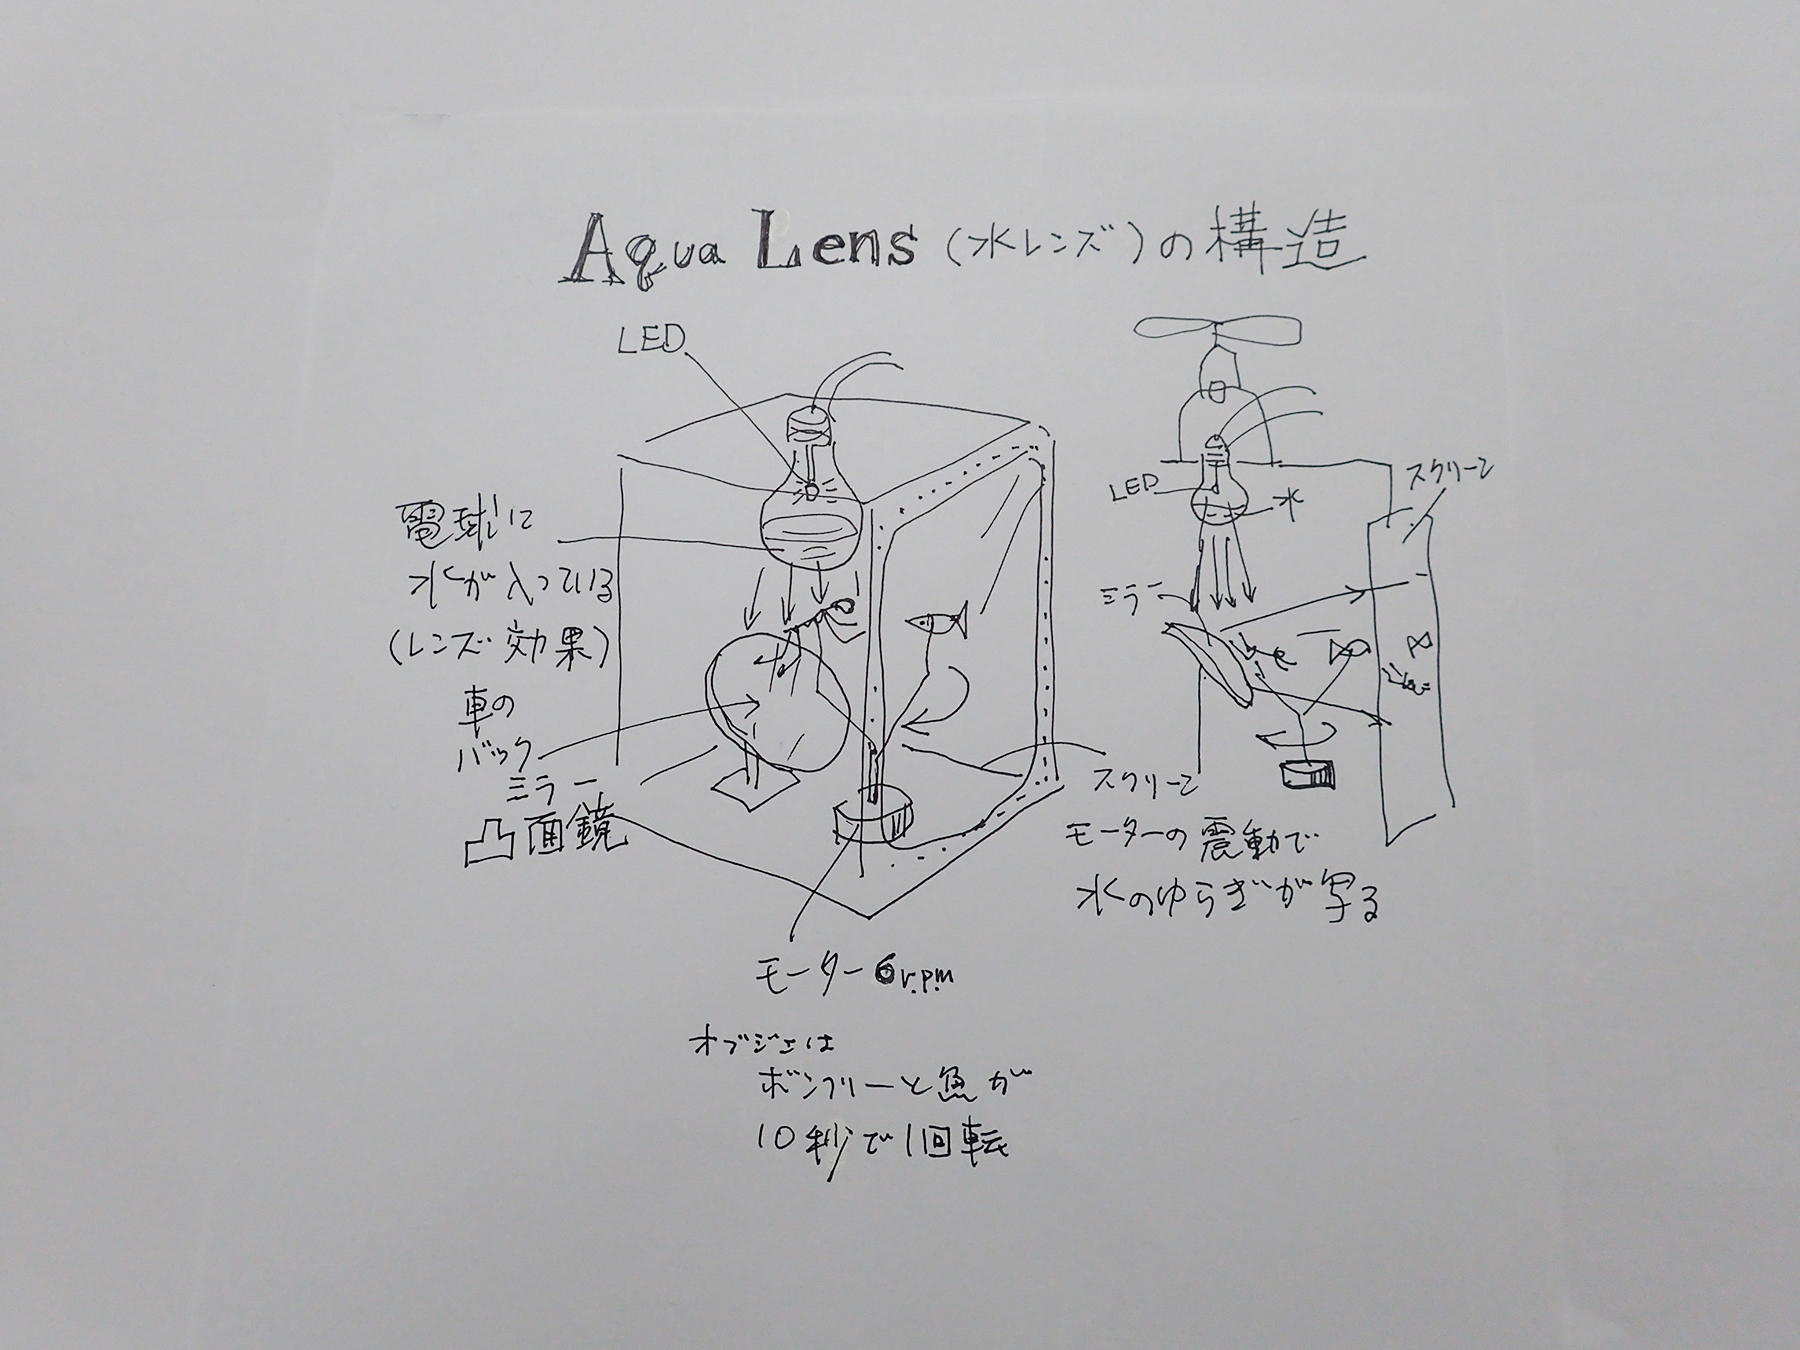 Aqua Lens (水レンズ)の構造
LED
電球に
水が入っている
(レンズ効果)
車の
バック
ミラー
凸面鏡
モーター6r.p.m
オブジェは
ボンフリーと魚が
10秒で1回転
LED
水
スクリーン
ミラー
スクリーン
モーターの震動で
水のゆらぎが写る